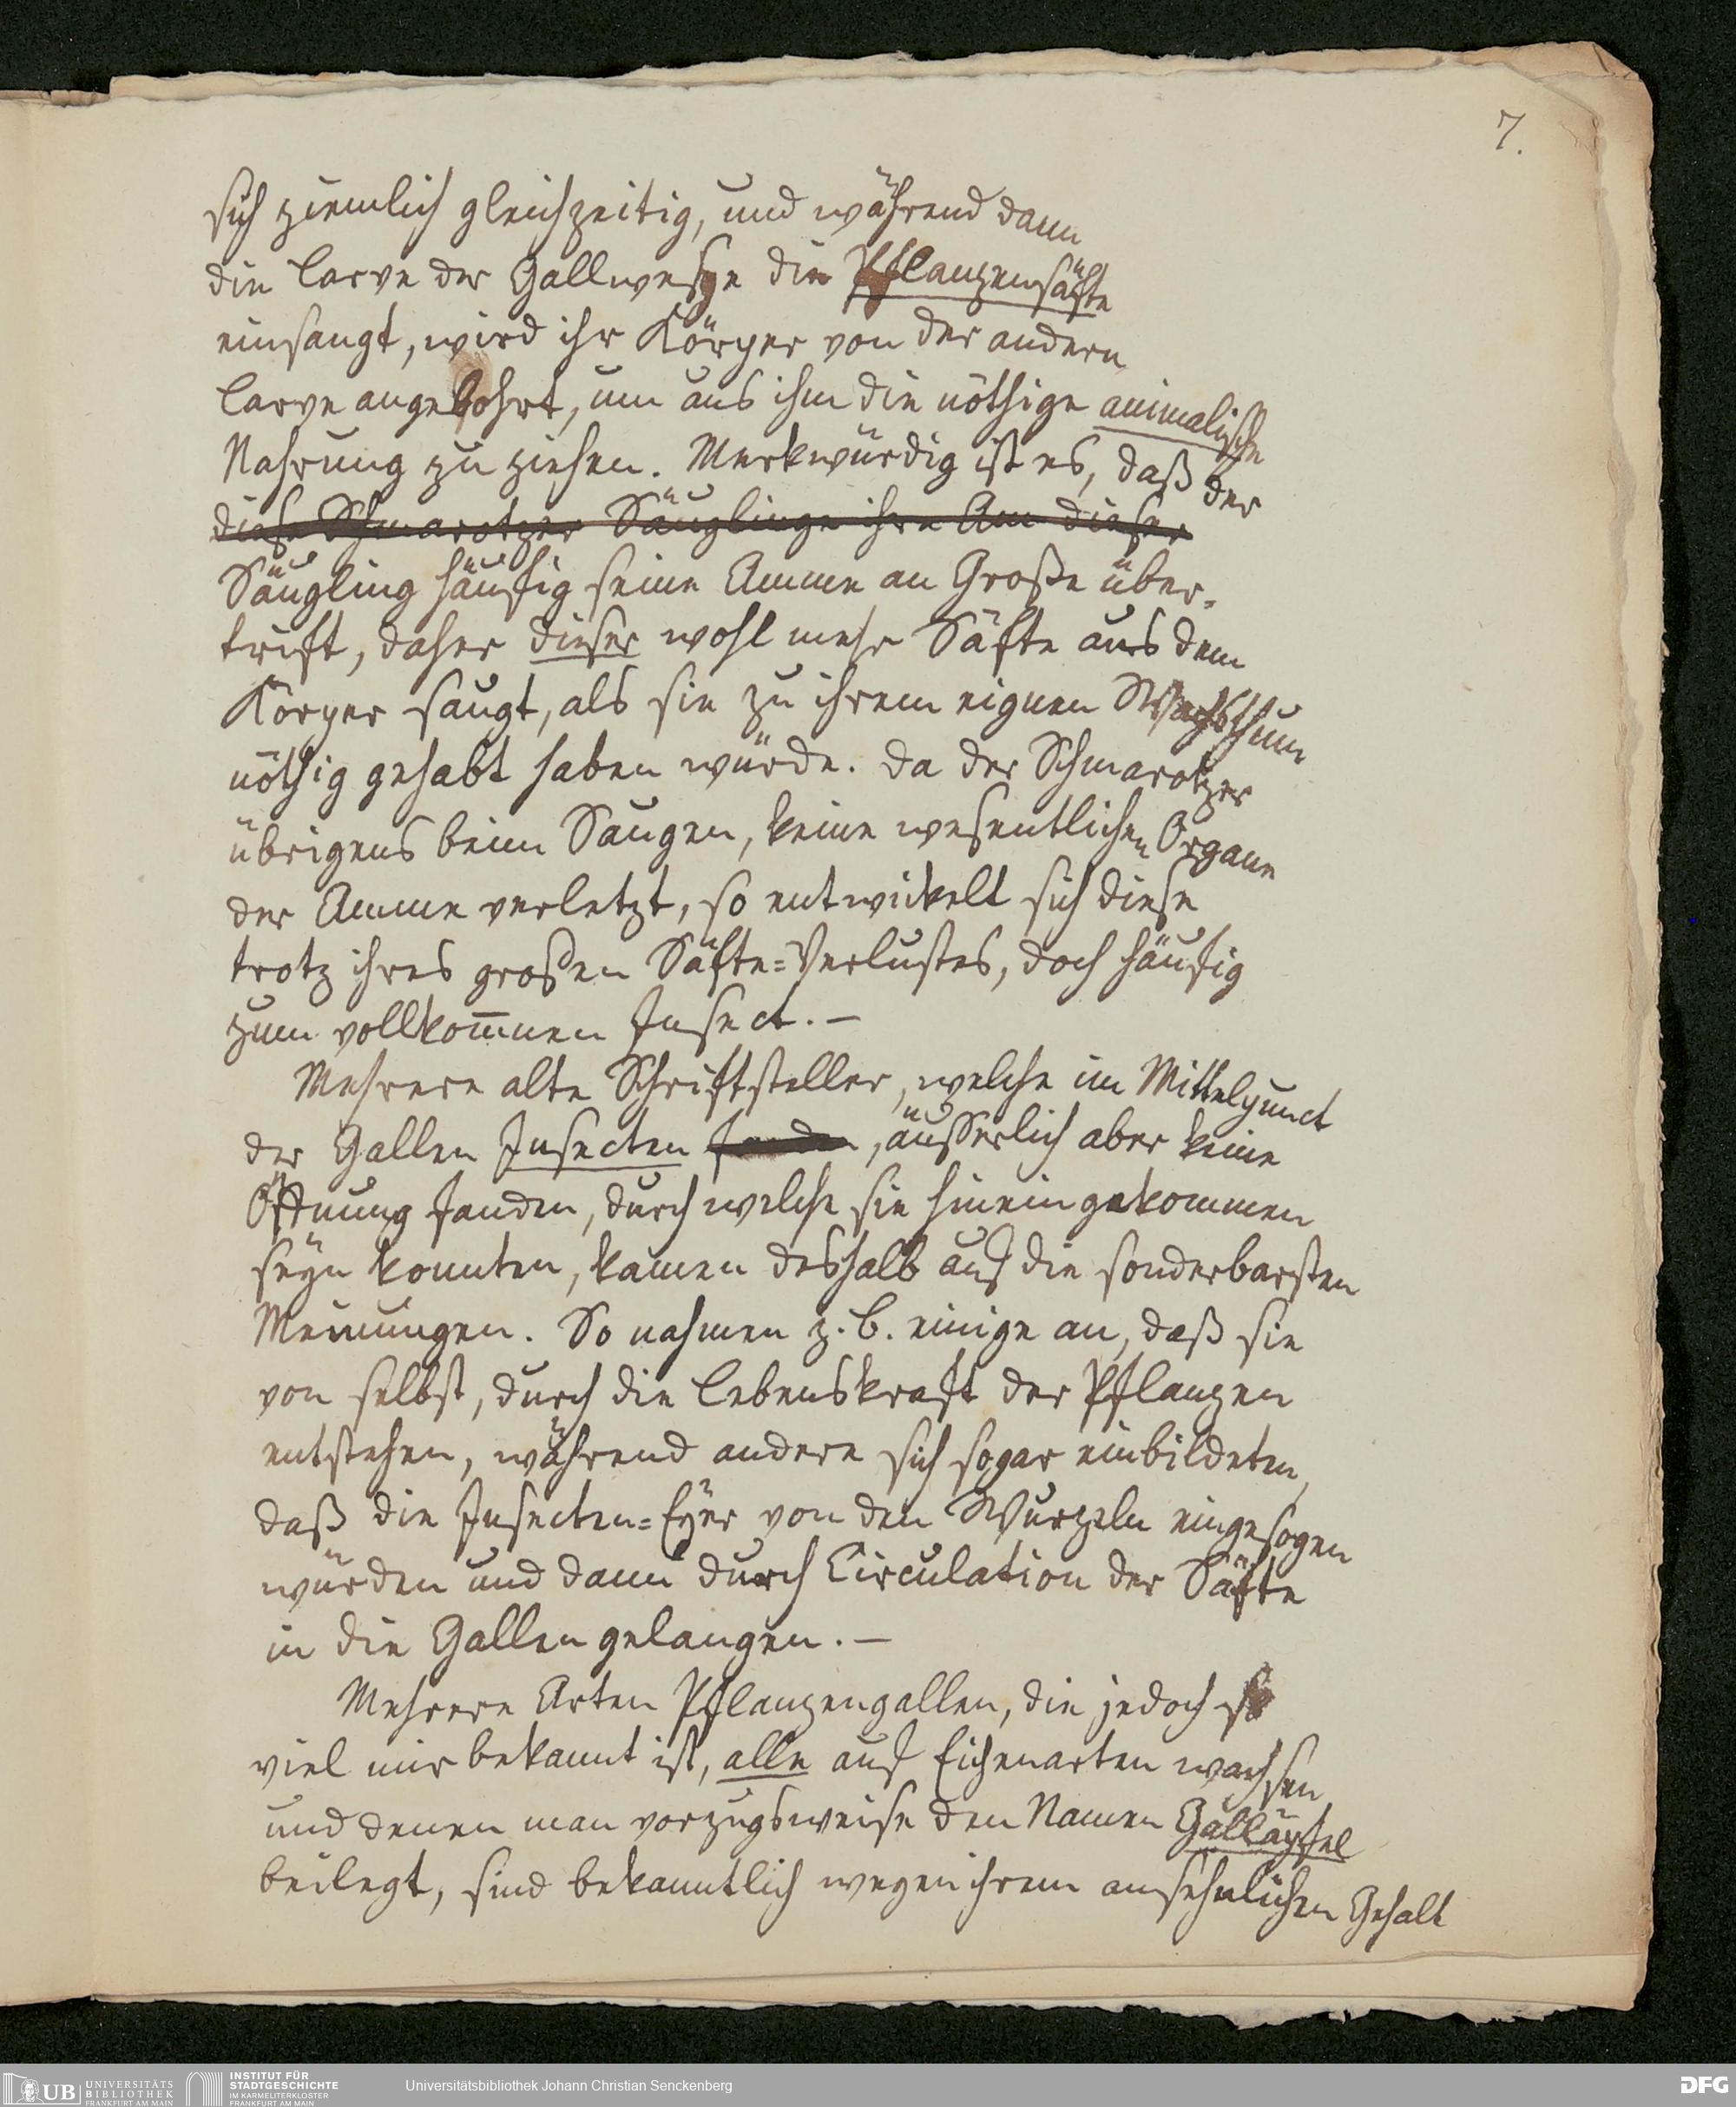 7.
sich ziemlich gleichzeitig, und während dann
die Larve der Gallwespe die Pflanzensäfte
einsaugt, wird ihr Körper von der andern
Larve angebohrt, um aus ihm die nöthige animalische
Nahrung zu ziehen. Merkwürdig ist es, daß der
diese Schmarotzer Säuglinge ihre Am dieser
Säugling häufig seine Amme an Große über-
trift, daher dieser wohl mehr Säfte aus dem
Körper saugt, als sie zu ihrem eignen Wachsthum
nöthig gehabt haben würde. Da der Schmarotzer
übrigens beim Saugen, keine wesentlichen Organe
der Amme verletzt, so entwickelt sich diese
trotz ihres großen Säfte=Verlustes, doch häufig
zum vollkom̄nen Insect. —
Mehrere alte Schriftsteller, welche im Mittelpunct
der Gallen Insecten fanden, äusserlich aber keine
Öffnung fanden, durch welche sie hineingekommen
seÿn konnten, kamen deshalb auf die sonderbarsten
Meinungen. So nahmen z. B. einige an, daß sie
von selbst, durch die Lebenskraft der Pflanzen
entstehen, während andere sich sogar einbildeten,
daß die Insecten=Eÿer von den Wurzeln eingesogen
würden und dann durch Circulation der Säfte
in die Gallen gelangen. —
Mehrere Arten Pflanzengallen, die jedoch so
viel mir bekannt ist, alle auf Eichenarten wachsen,
und denen man vorzugsweise den Namen Galläpfel
beilegt, sind bekanntlich wegen ihrem ansehnlichen Gehalt
UB UNIVERSITÄTS BIBLIOTHEK FRANKFURT AM MAIN
INSTITUT FÜR STADTGESCHICHTE IM KARMELITERKLOSTER FRANKFURT AM MAIN
Universitätsbibliothek Johann Christian Senckenberg
DFG